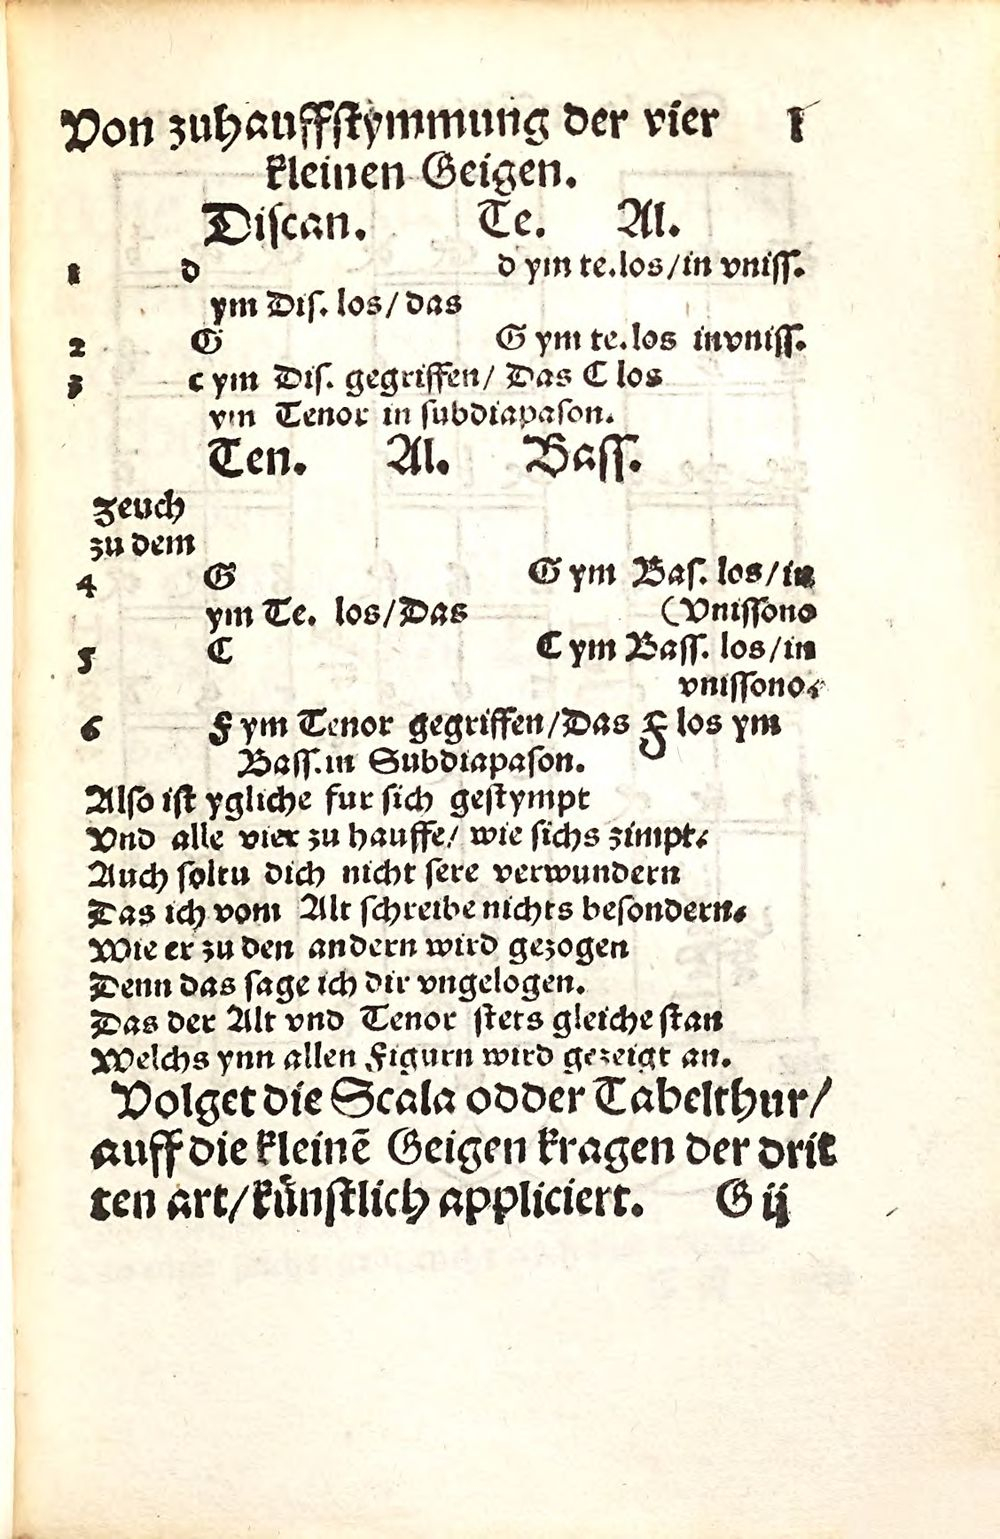 Von zuhauffstymmung der vier l
kleinen Geigen.
Discan. Te. Al.
1 d d ym te. los/in vniss.
ym Dis. los/das
2 G G ym te. los invniss.
3 c ym Dis. gegriffen/ Das C los
ym Tenor in subdiapason.
Ten. Al. Bass.
Zeuch
zu dem
4 G G ym Bas. los/in
ym Te. los/Das (Vnissono
5 C C ym Bass. los/in
vnissono.
6 F ym Tenor gegriffen/Das F los ym
Bass. in Subdiapason.
Also ist ygliche fur sich gestympt
Vnd alle vier zu hauffe/ wie sichs zimpt.
Auch soltu dich nicht sere verwundern
Das ich vom Alt schreibe nichts besondern.
Wie er zu den andern wird gezogen
Denn das sage ich dir vngelogen.
Das der Alt vnd Tenor stets gleiche stan
Welchs ynn allen Figurn wird gezeigt an.
Volget die Scala odder Tabelthur/
auff die kleinē Geigen kragen der drit
ten art/künstlich appliciert. G ij